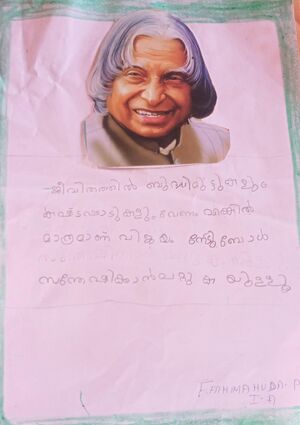 ജീവിതത്തിൽ ബുദ്ധിമുട്ടുകളും
കഷ്ടപ്പാടുകളും വേണം എങ്കിൽ
മാത്രമാണ് വിജയം നേടുമ്പോൾ
സന്തോഷിക്കാൻ കയുള്ളൂ
FATHIMA HUDA. P
I-A